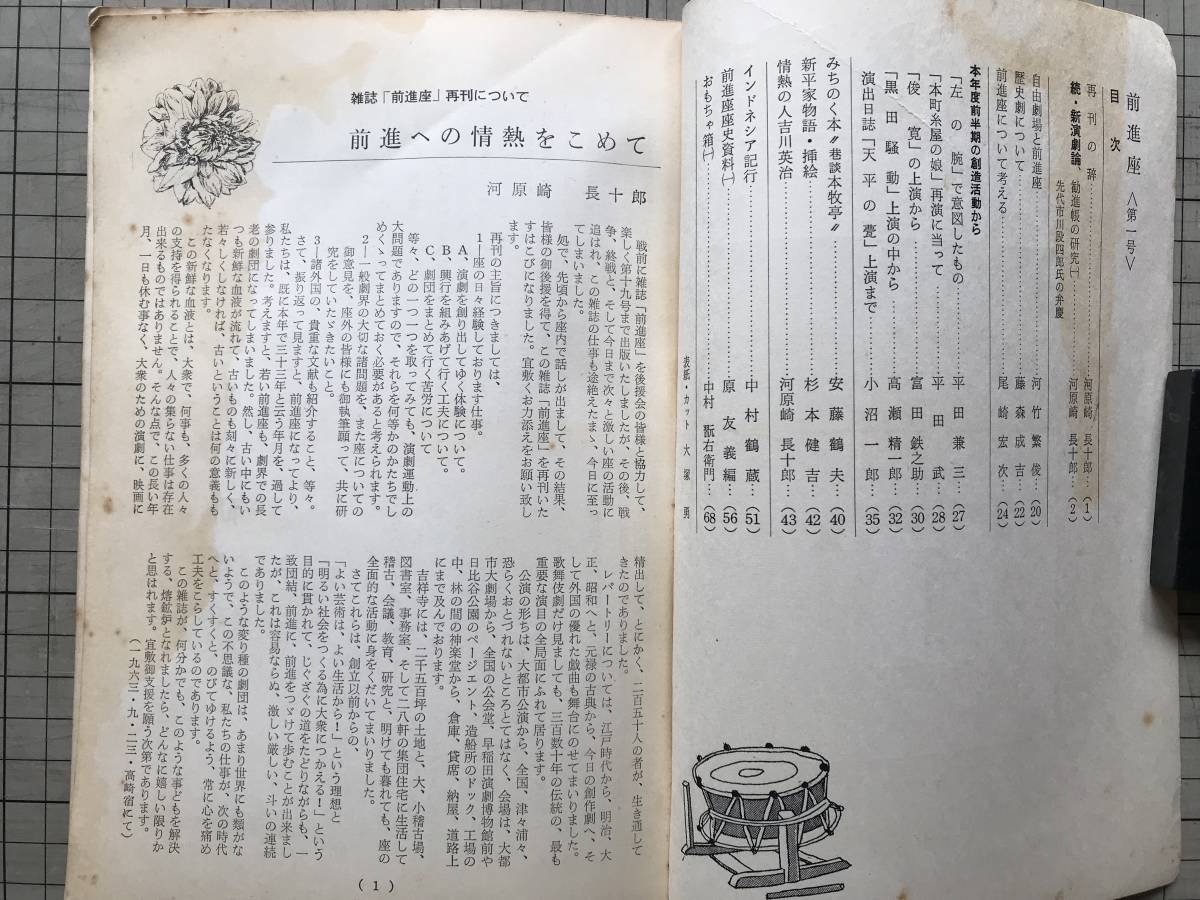 前進座 <第一号>
目次
再刊の辞…………河原崎 長十郎…(1)
続・新演劇論、勧進帳の研究㈠………河原崎 長十郎…(2)
先代市川段四郎氏の弁慶
自由劇場と前進座…………河竹 繁俊…(20)
歴史劇について…………藤森 成吉…(22)
前進座について考える…………尾崎 宏次…(24)
本年度前半期の創造活動から
「左の腕」で意図したもの…………平田 兼三…(27)
「本町糸屋の娘」再演に当って…………平田 武…(28)
「俊寛」の上演から…………富田 鉄之助…(30)
「黒田騒動」上演の中から…………高瀬 精一郎…(32)
演出日誌「天平の甍」上演まで…………小沼 一郎…(35)
みちのく本〝巷談本牧亭〟…………安藤 鶴夫…(40)
新平家物語・挿絵…………杉本 健吉…(42)
情熱の人吉川英治…………河原崎 長十郎…(43)
インドネシア記行…………中村 鶴蔵…(51)
前進座座史資料㈠…………原 友義編…(56)
おもちゃ箱㈠…………中村 翫右衛門…(68)
表紙・カット 大塚 勇
雑誌「前進座」再刊について
前進への情熱をこめて
河原崎 長十郎
戦前に雑誌「前進座」を後援会の皆様と協力して、
楽しく第十九号まで出版いたしましたが、その後、戦
争、終戦と、そして今日まで次々と激しい座の活動に
追はれ、この雑誌の仕事も途絶えたまゝ、今日に至っ
てしまいました。
処で、先頃から座内で話しが出まして、その結果、
皆様の御後援を得て、この雑誌「前進座」を再刊いた
すはこびになりました。宜敷くお力添えをお願い致し
ます。
再刊の主旨につきましては、
1―座の日々経験しております仕事。
A、演劇を創り出してゆく体験について。
B、興行を組みあげて行く工夫について。
C、劇団をまとめて行く苦労について
等々、どの一つ一つを取ってみても、演劇運動上の
大問題でありますので、それらを何等かのかたちでし
めくゝってまとめておく必要があると考えられます。
2―一般劇界の大切な諸問題を、また座についての
御意見を、座外の皆様にも御執筆願って、共に研
究をしていたゞきたいこと。
3―諸外国の、貴重な文献も紹介すること、等々。
さて、振り返って見ますと、前進座になってより、
私たちは、既に本年で三十三年と云う年月を、過して
参りました。考えますと、若い前進座も、劇界での長
老の劇団になってしまいました。然し、古い中にもい
つも新鮮な血液が流れて、古いものも刻々に新しく、
若々しくしなければ、古いということは何の意義もも
たなくなります。
この新鮮な血液とは、大衆で、何事も、多くの人々
の支持を得られることで、人々の集らない仕事は存在
出来るものではありません。そんな点で、この長い年
月、一日も休む事なく、大衆のための演劇に、映画に
精出して、とにかく、二百五十人の者が、生き通して
きたのでありました。
レパートリーについては、江戸時代から、明治、大
正、昭和へと、元禄の古典から、今日の創作劇へ、そ
して外国の優れた戯曲も舞台にのせてまいりました。
歌舞伎劇だけ見ましても、三百数十年の伝統の、最も
重要な演目の全局面にふれて居ります。
公演の形ちは、大都市公演から、全国、津々浦々、
恐らくおとづれないところとてはなく、会場は、大都
市大劇場から、全国の公会堂、早稲田演劇博物館前や
日比谷公園のページェント、造船所のドック、工場の
中、林の間の神楽堂から、倉庫、貸席、納屋、道路上
にまで及んでおります。
吉祥寺には、二千五百坪の土地と、大、小稽古場、
図書室、事務室、そして二八軒の集団住宅に生活して
稽古、会議、教育、研究と、明けても暮れても、座の
全面的な活動に身をくだいてまいりました。
さてこれらは、創立以前からの、
「よい芸術は、よい生活から！」という理想と
「明るい社会をつくる為に大衆につかえる！」という
目的に貫かれて、じぐざぐの道をたどりながらも、一
致団結、前進に、前進をつゞけて歩むことが出来まし
たが、これは容易ならぬ、激しい厳しい、斗いの連続
でありました。
このような変り種の劇団は、あまり世界にも類がな
いようで、この不思議な、私たちの仕事が、次の時代
へと、すくすくと、のびてゆけるよう、常に心を痛め
工夫をこらしているのであります。
この雑誌が、何分かでも、このような事どもを解決
する、熔鉱炉となれましたら、どんなに嬉しい限りか
と思はれます。宜敷御支援を願う次第であります。
(一九六三・九・二三・高崎宿にて)
(1)